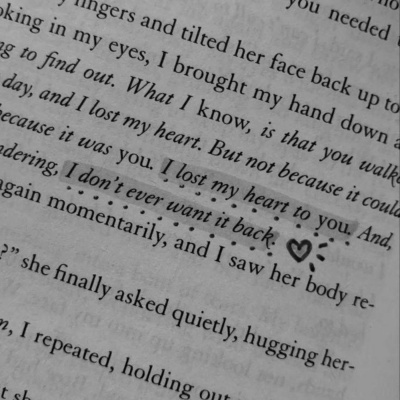 you needed
fingers and tilted her face back up to
oking in my eyes, I brought my hand down
to find out. What I know, is that you
day, and I lost my heart. But not because it
because it was you. I lost my heart to you. And,
ndering, I don't ever want it back.
again momentarily, and I saw her body re-
?" she finally asked quietly, hugging her-
I repeated, holding